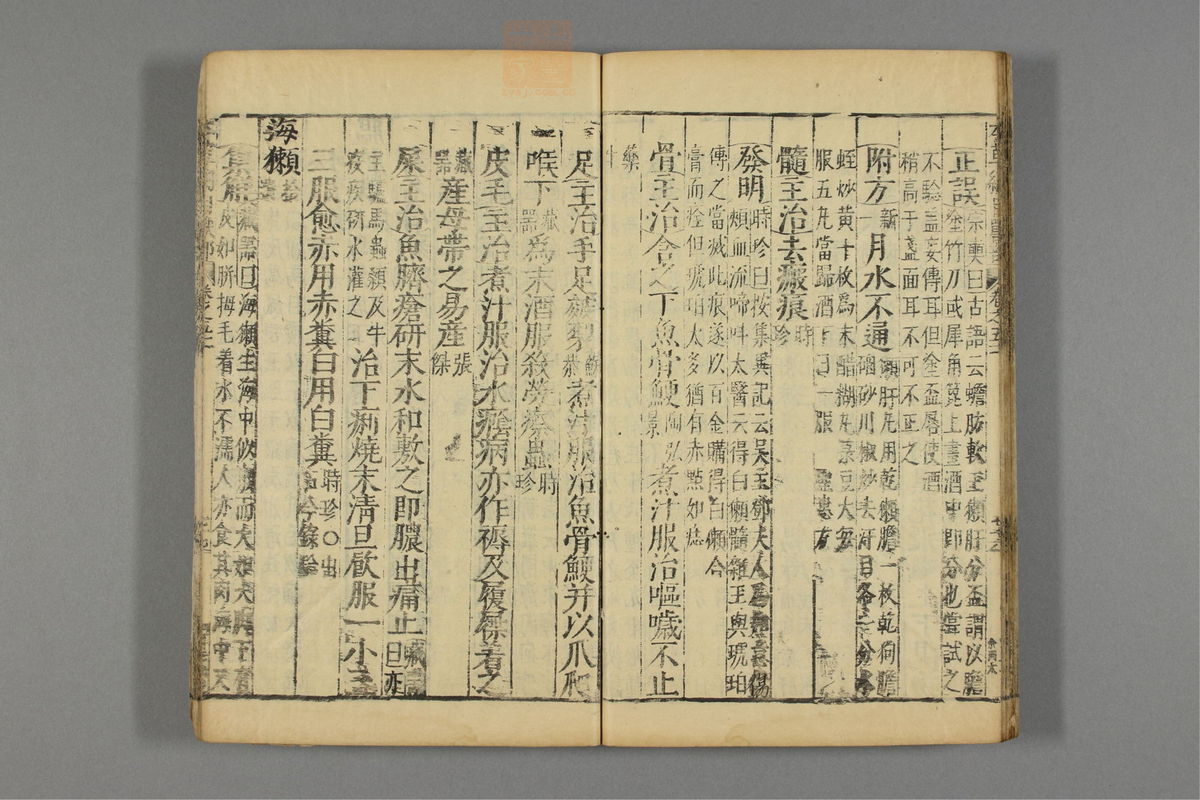 正誤宗奭曰古語云蟾肪軟玉獺肝分盃謂以膽
塗竹刀或犀角篦上畫酒中即分也嘗試之
不驗蓋妄傳耳但塗盃唇使酒
稍高于盞面耳不可不正之
附方新一月水不通獺肝丸用乾獺膽一枚乾狗膽
硇砂川椒炒去汗目各一分
蛭炒黃十枚爲末醋糊丸菉豆大每
服五丸當歸酒下日一服
髓主治去瘢痕時珍
發明時珍曰按集異記云吳主鄧夫人
頰血流啼呌太醫云得白獺髓雜玉與琥珀
傳之當滅此痕遂以百金購得白獺合
膏而痊但琥珀太多猶有赤點如痣
骨主治含之下魚骨鯁陶弘景煮汁服治嘔噦不止
藥
足主治手足皴裂蘇恭煮汁服治魚骨鯁并以爪爬
喉下藏器爲末酒服殺勞瘵蟲時珍
皮毛主治煮汁服治水癊病亦作褥及履屧著之
藏器産母帶之易産張傑
屎主治魚臍瘡研末水和敷之即膿出痛止藏器曰亦
主驢馬蟲顙及牛
疫疾研水灌之治下痢燒末清旦飲服一小盞
三服愈亦用赤糞白用白糞時珍○出
海獺
集解藏器曰海獺生海中似獺而大如犬脚下有
皮如胼拇毛着水不濡人亦食其肉海中又